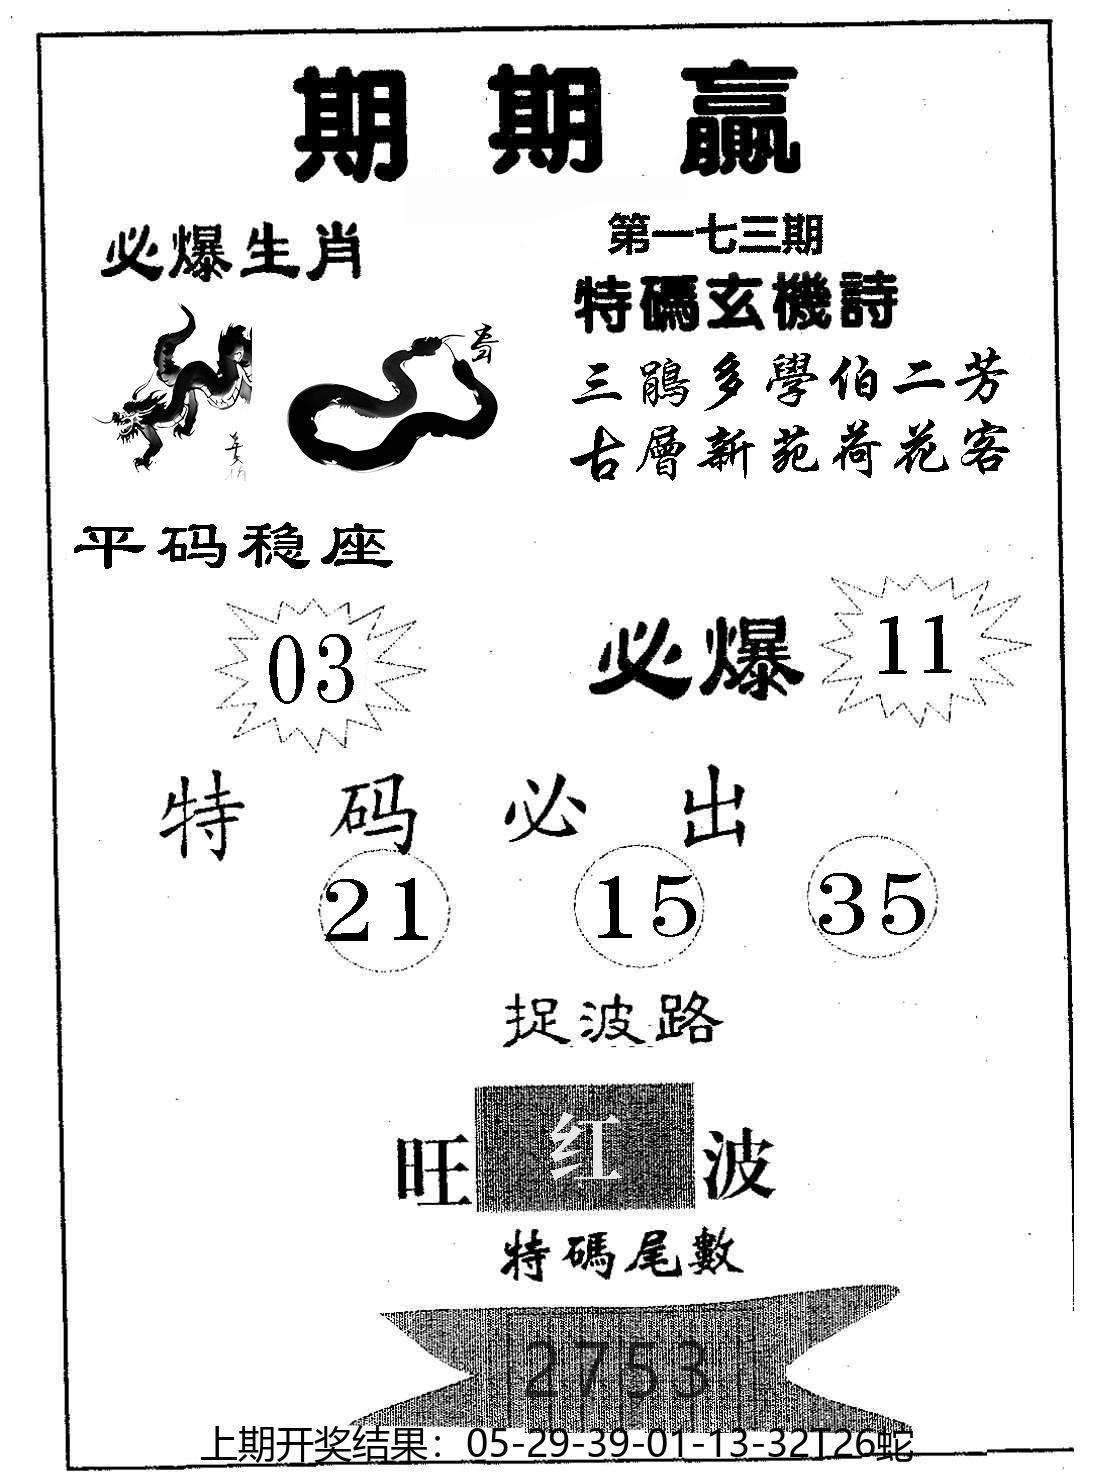 期期贏
必爆生肖
第一七三期
特碼玄機詩
三鵑多學伯二芳
古層新苑荷花客
平码稳座
03
必爆
11
特码必出
21 15 35
捉波路
旺红波
特碼尾數
2753
上期开奖结果：05-29-39-01-13-32T26蛇